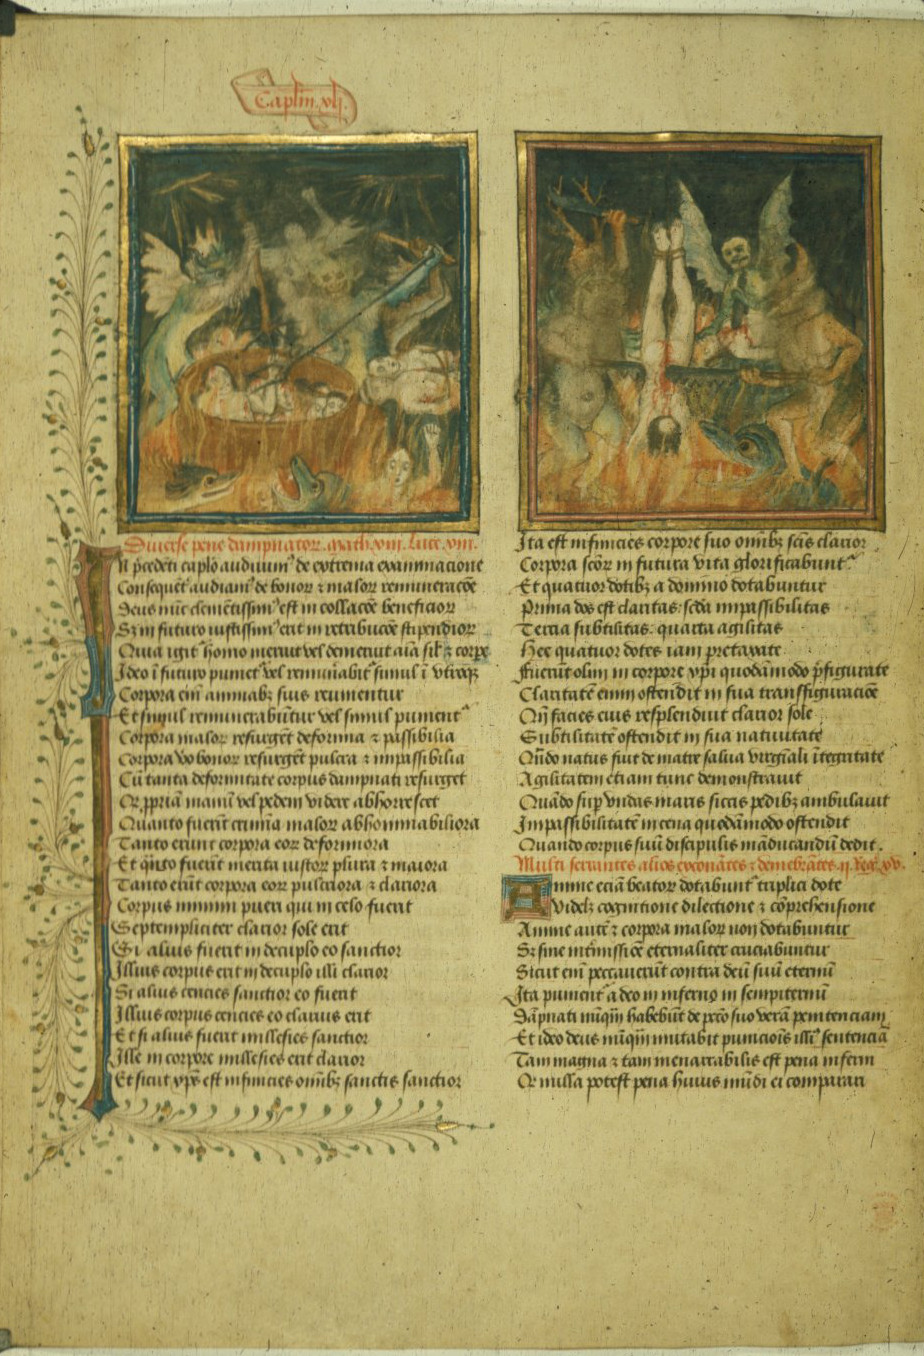 Caplm̄. xlj.
Diverse pene dampnatoꝝ. Math. viii. Luce. viii.
In p̄cedēti caplo audiuimꝰ de extrema examinacione
Consequēt̾ audiamꝰ de bonoꝝ ⁊ maloꝝ remuneracōe
Deus nūc clemētissimꝰ est in collacōe beneficioꝝ
Sꝫ in futuro iustissimꝰ erit in retribucōe stipendioꝝ
Quia igit̾ homo meruit vel demeruit aīa sil̾ ⁊ corpe
Ideo ī futuro puniet̾ vel remūabit̾ simul ī vtroqꝫ
Corpora eīm animabꝫ suis reunientur
Et simul remunerabūtur vel simul punient̾
Corpora maloꝝ resurgēt deformia ⁊ passibilia
Corpora v̾o bonoꝝ resurgēt pulcra ⁊ impassibilia
Cū tanta deformitate corpus dampnati resurget
Qꝫ ꝓpriā manū vel pedem videre abhorrescet
Quanto fuerīt crimīa maloꝝ abhominabiliora
Tanto erunt corpora eoꝝ deformiora
Et q̄nto fuerīt merita iustoꝝ plura ⁊ maiora
Tanto erūt corpora eoꝝ pulcriora ⁊ clariora
Corpus minimi pueri qui in celo fuerit
Septempliciter clarior sole erit
Si alius fuerit in decuplo eo sanctior
Illius corpus erit in decuplo illi clarior
Si alius cencies sanctior eo fuerit
Illius corpus cencies eo clarius erit
Et si alius fuerit millesies sanctior
Ille in corpore millesies erit clarior
Et sicut xp̄s est infincies omībꝫ sanctis sanctior
Ita est infincies corpore suo omībꝫ scīs clarior
Corpora scōꝝ in futura vita glorificabunt̾
Et quatuor dotibꝫ a domino dotabuntur
Prima dos est claritas: scd̄a impassibilitas
Tercia subtilitas: quarta agilitas
Hee quatuor dotes iam pretaxate
Fuerūt olim in corpore xp̄i quodāmodo p̄figurate
Claritatē enim ostendit in sua transfiguracōe
Qn̄ facies eius resplenduit clarior sole
Subtilitatē ostendit in sua natiuitate
Qn̄do natus fuit de matre salua virgīali ītegritate
Agilitatem etiam tunc demonstrauit
Quādo suꝑ vndas maris siccis pedibꝫ ambulauit
Impassibilitatē in cena quodāmodo ostendit
Quando corpus suū discipulis māducandū dedit
Multi serrantes alios exconātes ⁊ demēbrātes. ii. Reg̾. xv.
Anime eciā beatoꝝ dotabunt̾ triplici dote
Videlꝫ cognitione dilectione ⁊ cōprehensione
Anime autē ⁊ corpora maloꝝ non dotabuntur
Sꝫ sine intmissiōe eternaliter cruciabuntur
Sicut eīm peccauerūt contra deū suū eternū
Ita punient̾ a deo in inferno in sempiternū
Dāpnati nūqm̄ habebūt de pctō suo verā penitenciam
Et ideo deus nūqm̄ mutabit punicōis illiꝰ sentencia
Tam magna ⁊ tam inenarrabilis est pena inferni
Qꝫ nulla potest pena huius mūdi ei comparari